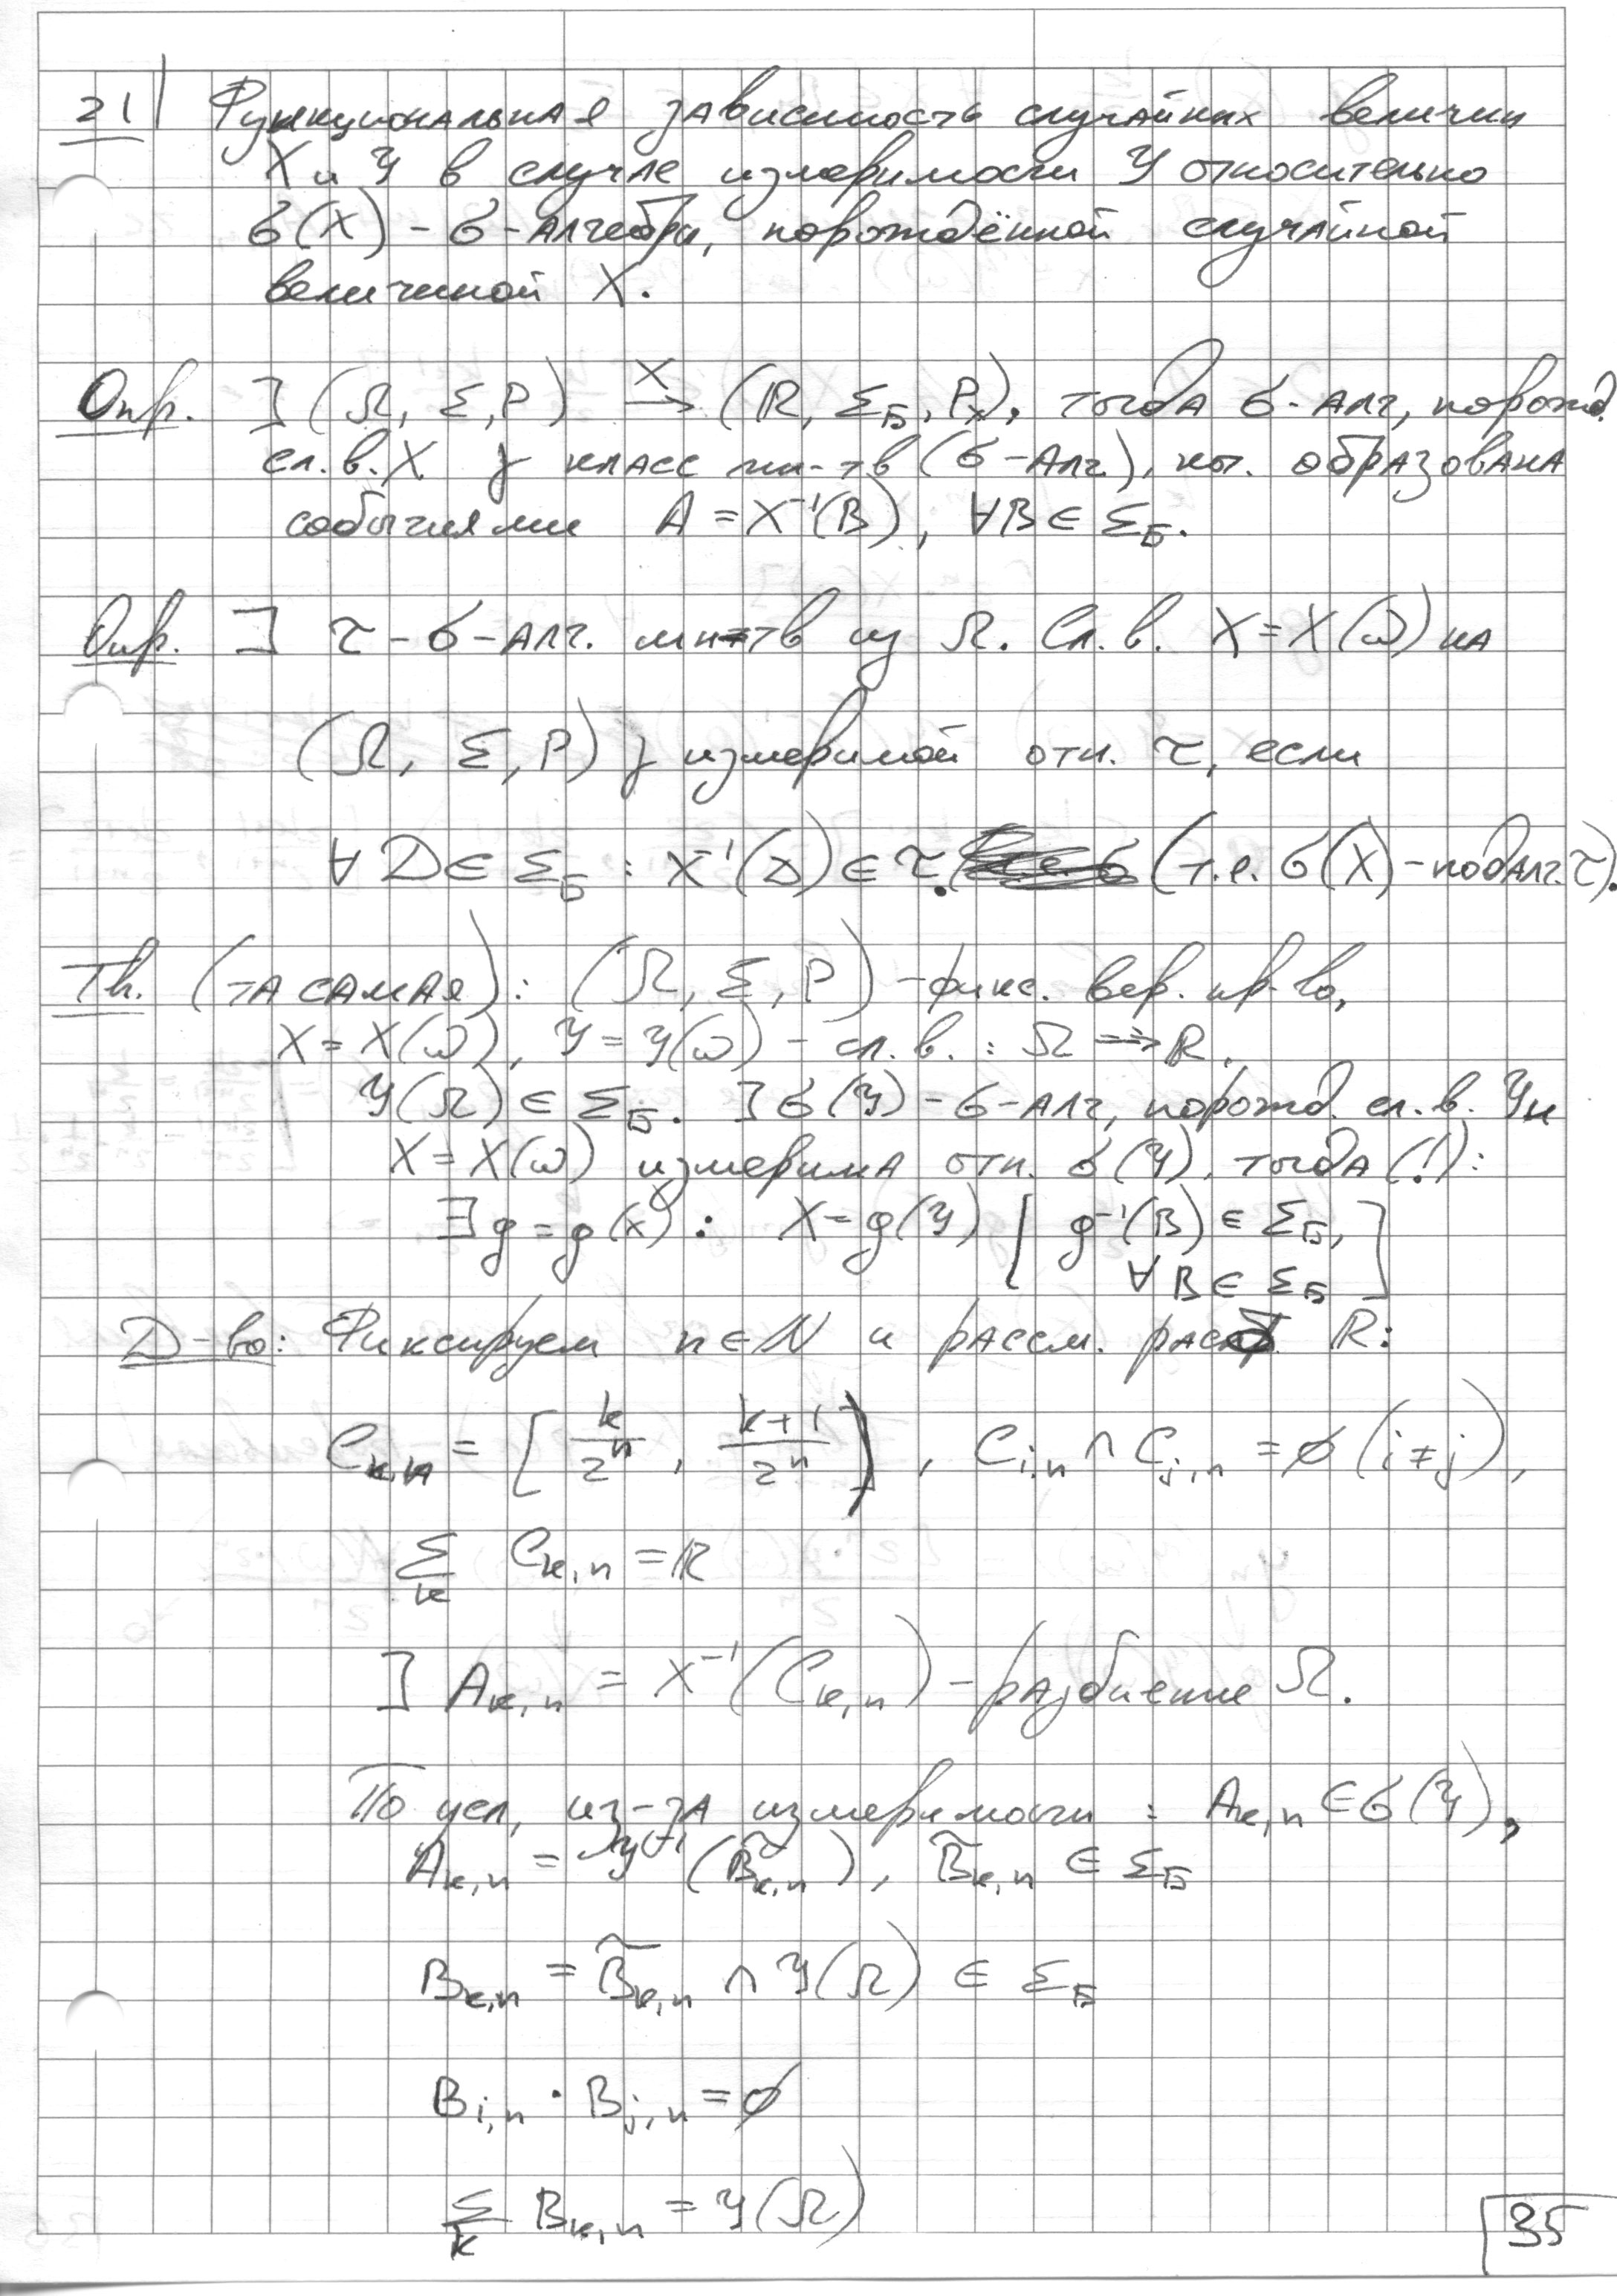 21 Функциональная зависимость случайных величин
X и Y в случае измеримости Y относительно
σ(X) - σ-алгебры, порождённой случайной
величиной X.
Опр. ∃ (Ω, Σ, P) →^X (ℝ, Σ_Б, P_X), тогда σ-алг, порожд.
сл. в. X } класс мн-тв (σ-алг.), кот. образована
событиями A = X⁻¹(B), ∀B ∈ Σ_Б.
Опр. ∃ τ - σ-алг. мн-тв из Ω. Сл. в. X = X(ω) на
(Ω, Σ, P) } измеримой отн. τ, если
∀ D ∈ Σ_Б : X⁻¹(D) ∈ τ. (т.е. σ(X) - подалг. τ).
Th. (та самая): (Ω, Σ, P) - фикс. вер. пр-во,
X = X(ω), Y = Y(ω) - сл. в. : Ω → ℝ,
Y(Ω) ∈ Σ_Б. ∃ σ(Y) - σ-алг, порожд. сл. в. Y и
X = X(ω) измерима отн. σ(Y), тогда (!):
∃ g = g(x) : X = g(Y) [ g⁻¹(B) ∈ Σ_Б,
∀ B ∈ Σ_Б ]
Д-во: Фиксируем n ∈ ℕ и рассм. ℝ:
C_{k,n} = [ k/2ⁿ , (k+1)/2ⁿ ), C_{i,n} ∩ C_{j,n} = ∅ (i ≠ j),
Σ_k C_{k,n} = ℝ
∃ A_{k,n} = X⁻¹(C_{k,n}) - разбиение Ω.
По усл, из-за измеримости : A_{k,n} ∈ σ(Y),
A_{k,n} = Y⁻¹(B̃_{k,n}), B̃_{k,n} ∈ Σ_Б
B_{k,n} = B̃_{k,n} ∩ Y(Ω) ∈ Σ_Б
B_{i,n} · B_{j,n} = ∅
Σ_k B_{k,n} = Y(Ω)
35